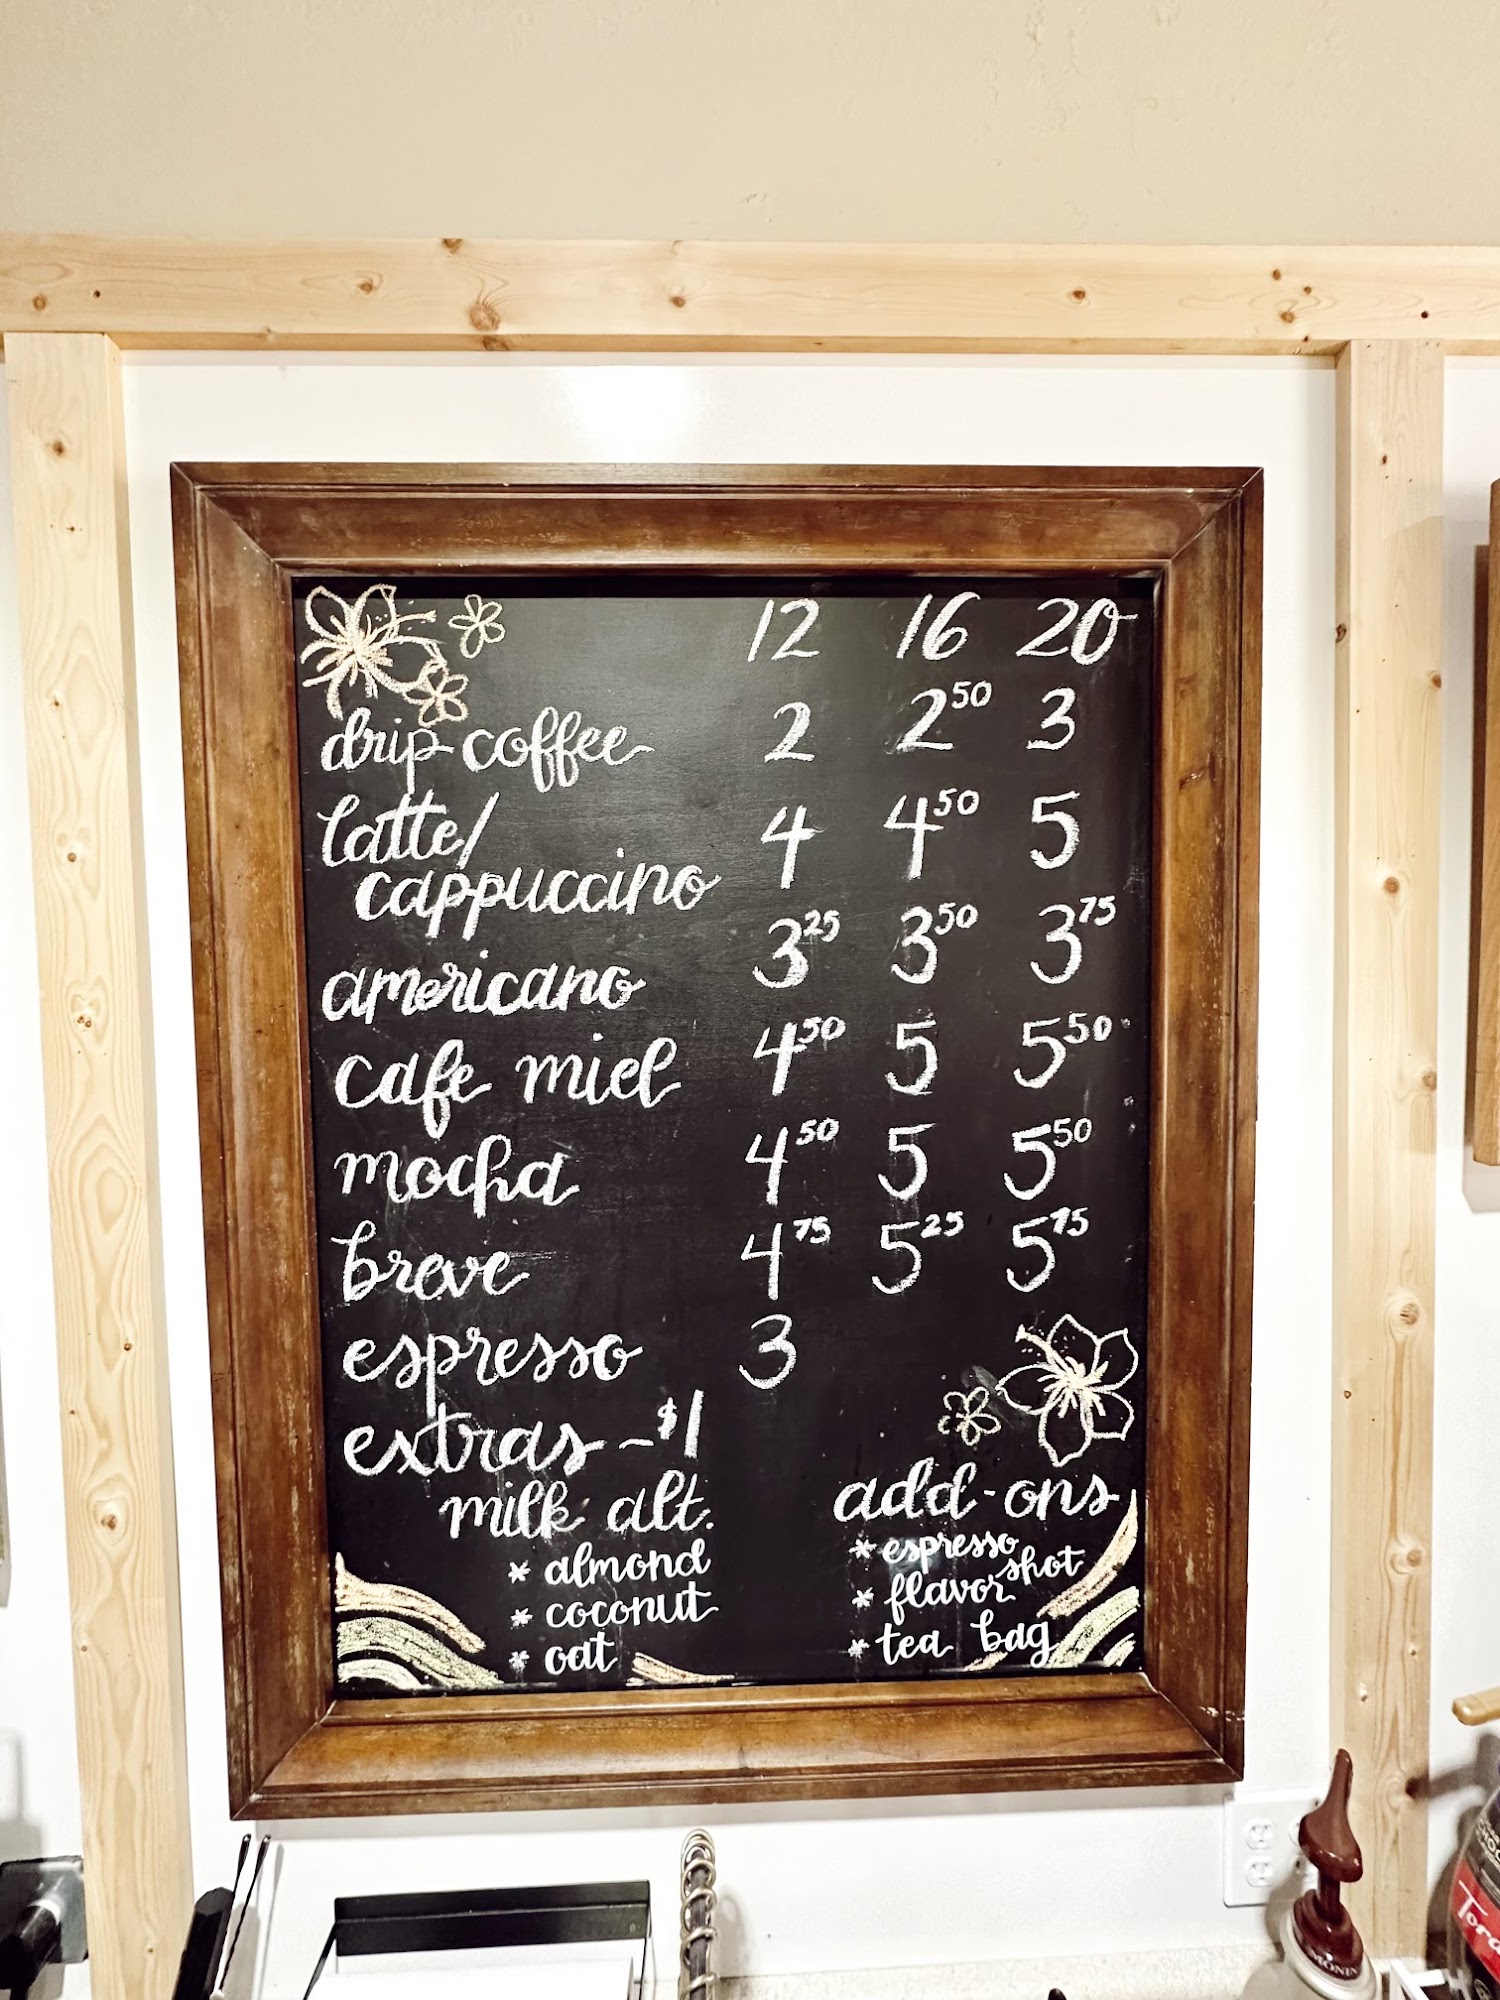 12 16 20
drip coffee 2 2⁵⁰ 3
latte/
cappuccino 4 4⁵⁰ 5
americano 3²⁵ 3⁵⁰ 3⁷⁵
cafe miel 4⁵⁰ 5 5⁵⁰
mocha 4⁵⁰ 5 5⁵⁰
breve 4⁷⁵ 5²⁵ 5⁷⁵
espresso 3
extras ~ $1
milk alt.
* almond
* coconut
* oat
add-ons
* espresso shot
* flavor
* tea bag
MONIN